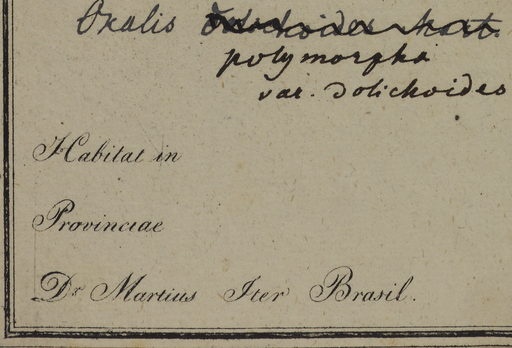 Oxalis dolichoides Mart.
polymorpha
var. dolichoides
Habitat in
Provinciae
Dr Martius Iter Brasil.